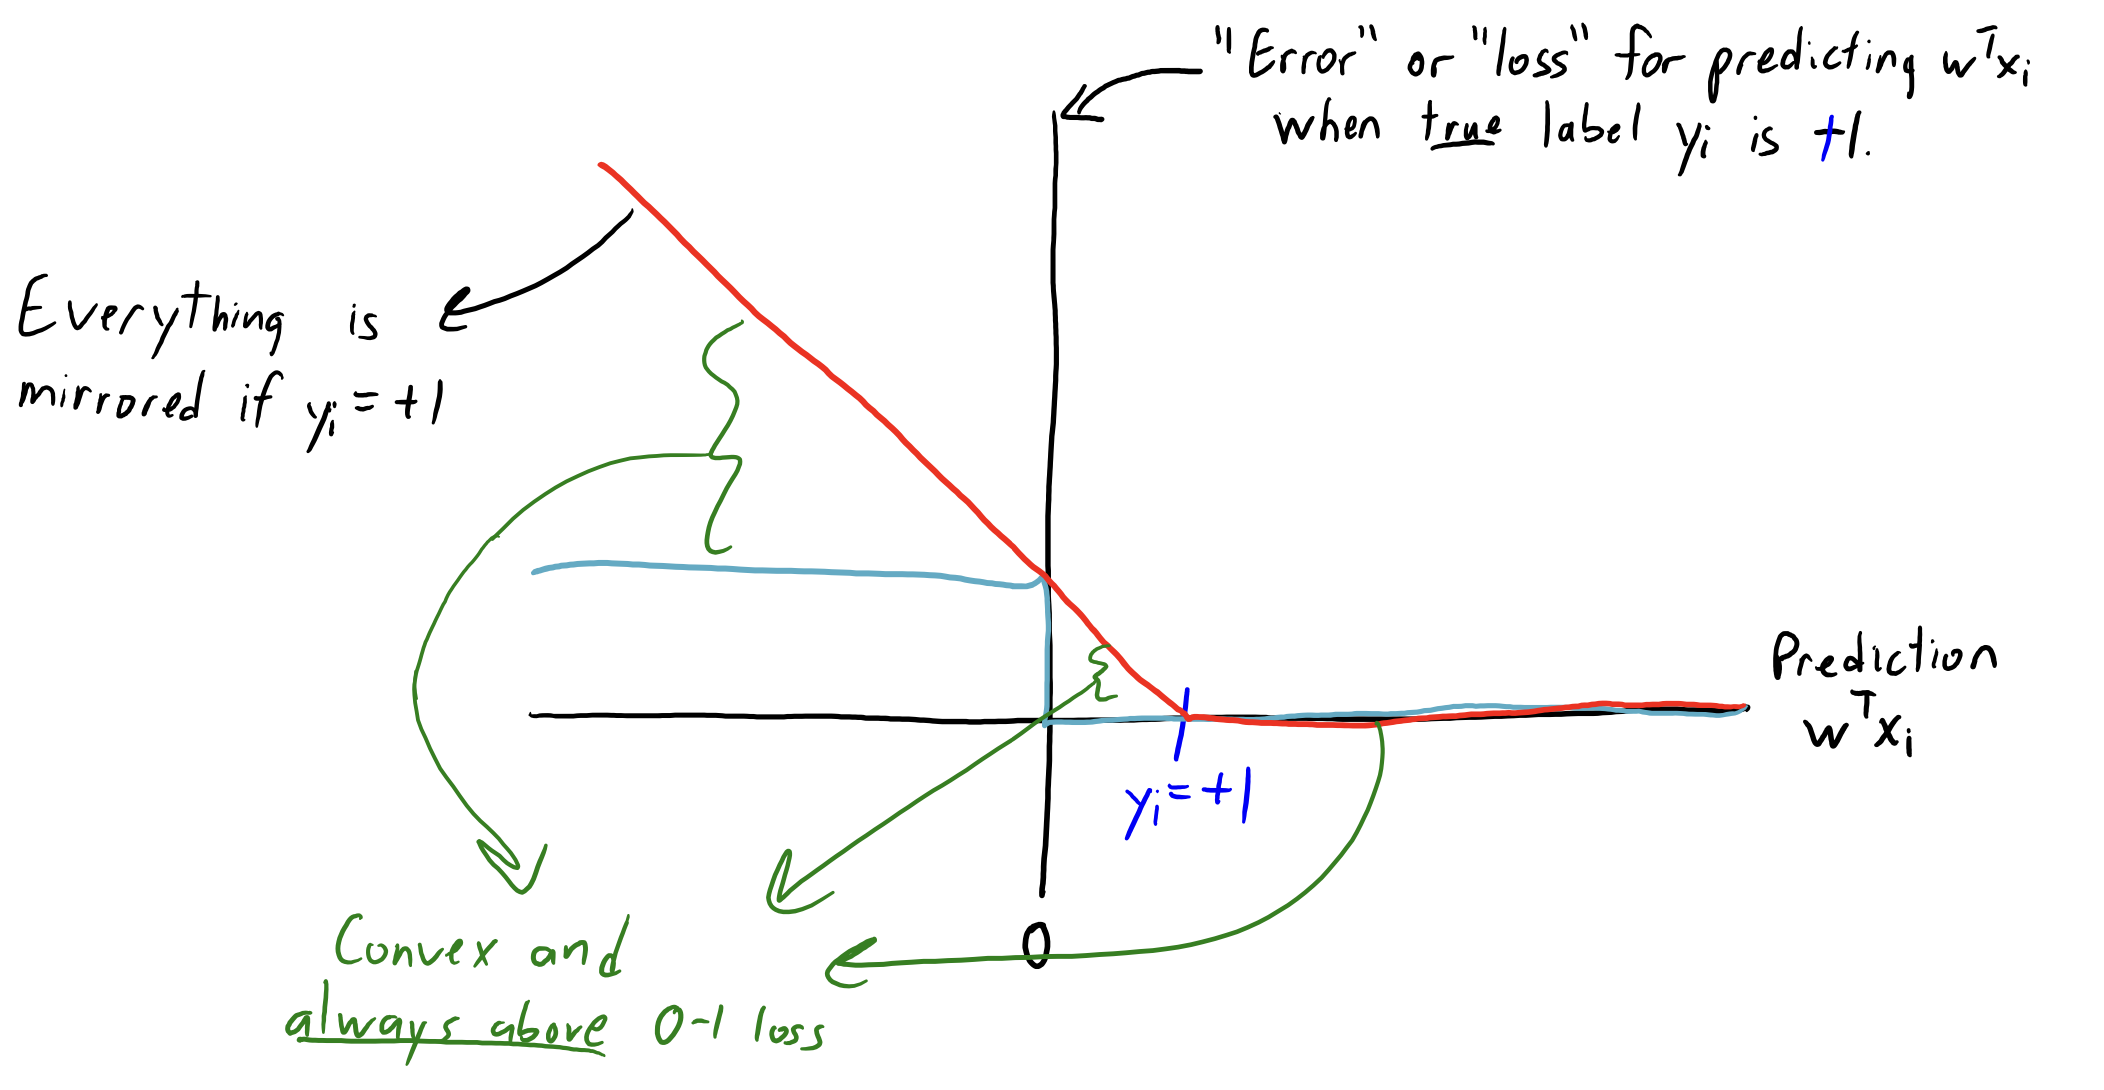 "Error" or "loss" for predicting wᵀxᵢ
when true label yᵢ is +1.
Everything is
mirrored if yᵢ = +1
Prediction
wᵀxᵢ
yᵢ = +1
0
Convex and
always above 0-1 loss